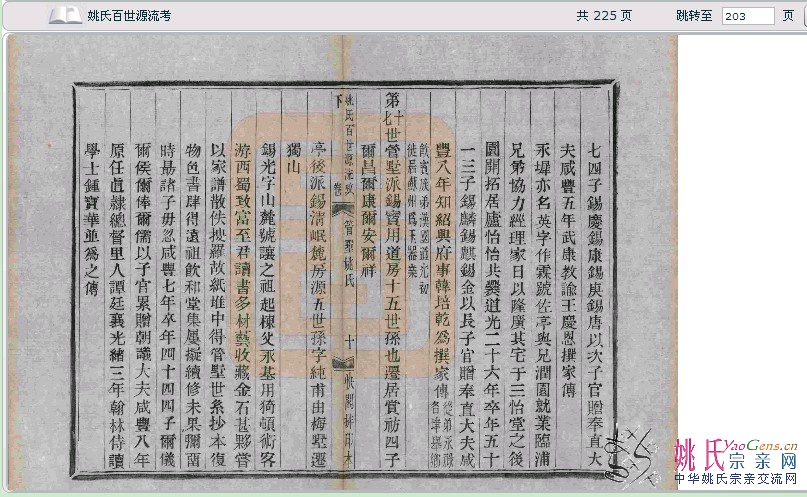 姚氏百世源流考
共 225 页
跳转至 203 页
七四子錫慶錫康錫庚錫唐以次子官贈奉直大
夫咸豐五年武康教諭王慶恩撰家傳
永墀亦名英字作霖號佐亭與兄潤園就業臨浦
兄弟協力經理家日以隆廣其宅于三怡堂之後
園開拓居廬怡怡共爨道光二十六年卒年五十
一三子錫麟錫麒錫金以長子官贈奉直大夫咸
豐八年知紹興府事韓培乾為撰家傳
第十七世管墅派錫寶用道房十五世孫也遷居賞祊四子
爾昌爾康爾安爾祥
姚氏百世源流考 卷下 管墅姚氏 十
亭後派錫淸岷麓房源五世孫字純甫由梅墅遷
獨山
錫光字山麓號讓之祖起棟父永基用猗頓術客
游西蜀致富至君讀書多材藝收藏金石甚夥嘗
以家譜散佚搜羅故紙堆中得管墅世系抄本復
物色書肆得遠祖飮和堂集屬擬續修未果彌留
時易諸子毋忽咸豐七年卒年四十四四子爾儀
爾侯爾俸爾儒以子官累贈朝議大夫咸豐八年
原任直隷總督里人譚廷襄光緒三年翰林侍讀
學士鍾寶華並為之傳
姚氏宗亲网
YaoGens.cn
中华姚氏宗亲交流网